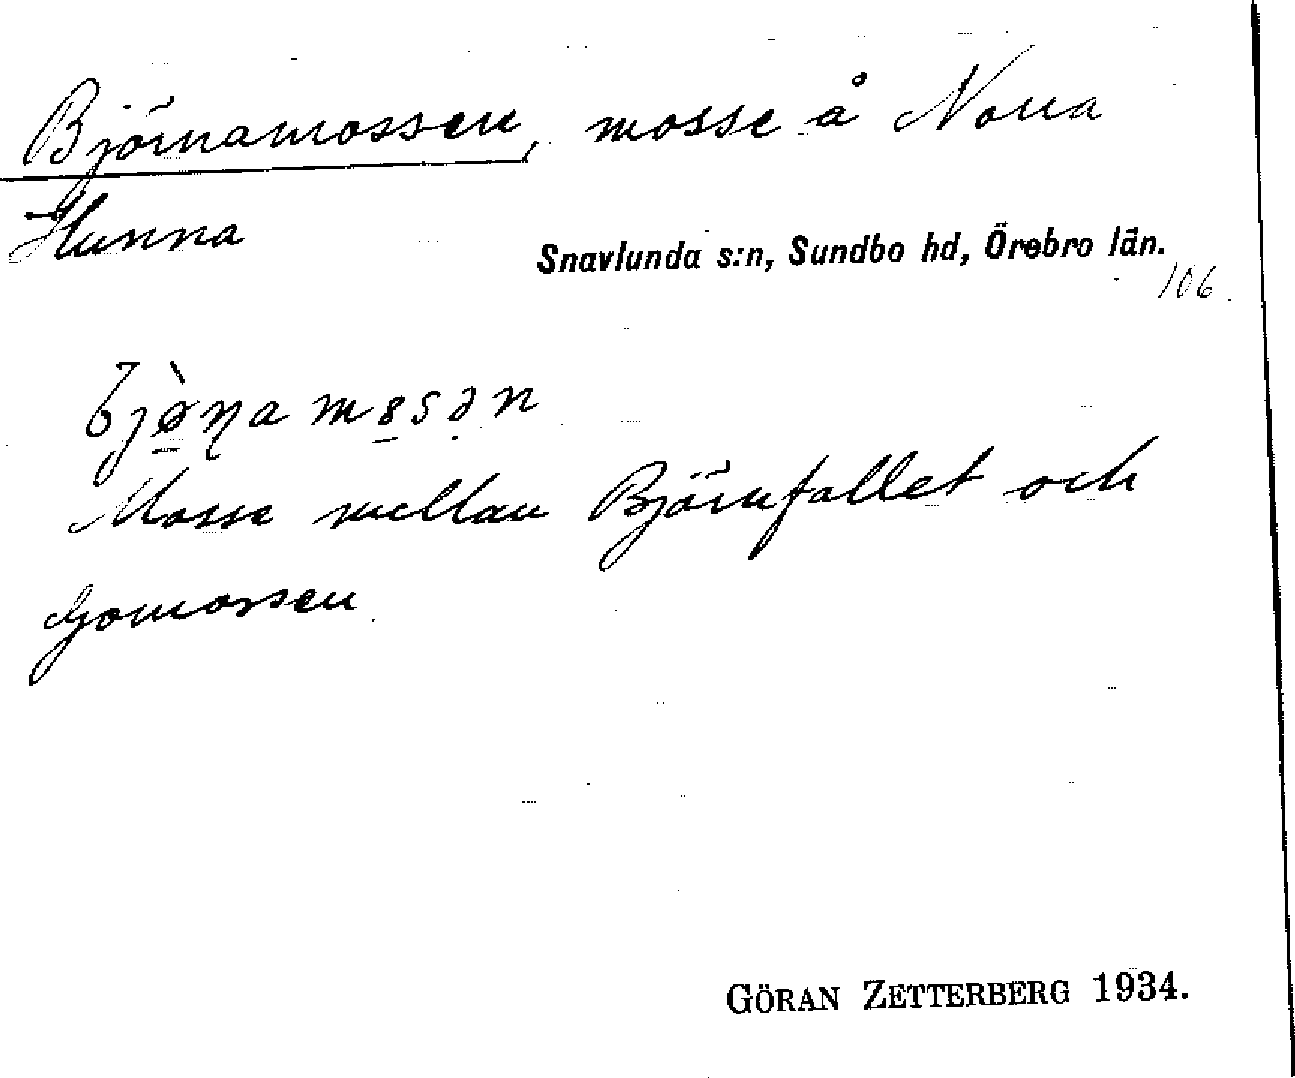 Björnamossen, mosse å Norra
Hunna
Snavlunda s:n, Sundbo hd, Örebro län.
106.
Mosse mellan Björnfallet och
Gomossen.
GÖRAN ZETTERBERG 1934.